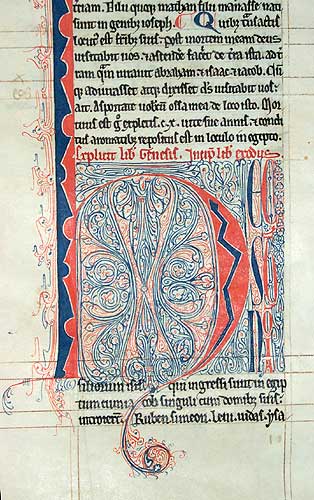 triam. Filii quoq; machir filii manasse nati
sunt in genib; ioseph. Quib; transactis
locut' est frib; suis. post mortem meam deus
visitabit vos & ascendē faciet de tra ista ad
tram quā iuravit abraham & isaac & iacob. Cū
q; adiurasset atq; dixisset ds visitabit vos
asportate vobcū ossa mea de loco isto. Mor
tuus est expletis .c.x. vite sue annis. & condi
tus aromatib; repositus est in loculo in egipto.
Explicit lib Genesis. Incip lib exodus
HEC SUNT NOMINA
filiorum isrl qui ingressi sunt in egip
tum cum iacob singuli cum domib; suis
introierūt. Ruben. simeon. Leui. iudas. ysa